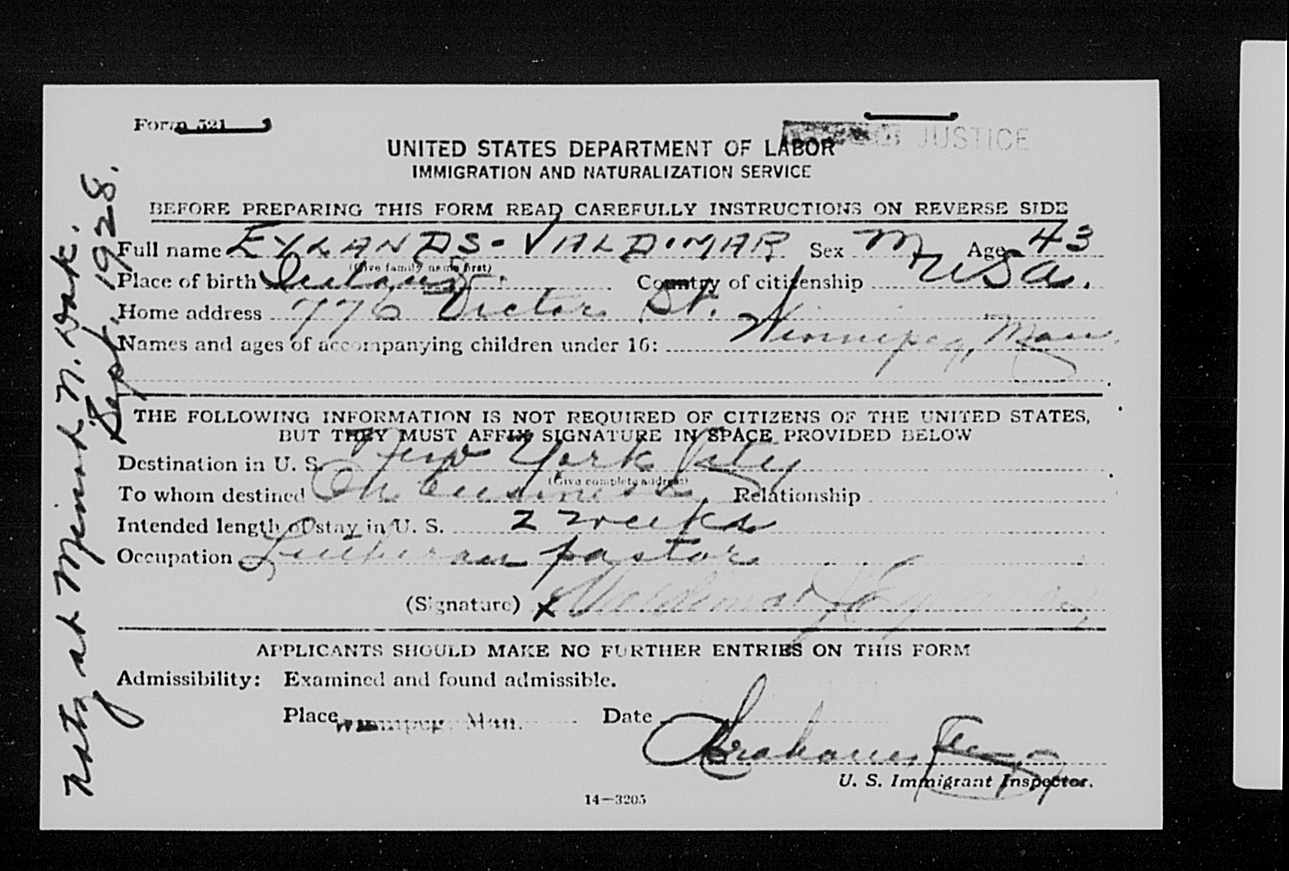 Form 521
UNITED STATES DEPARTMENT OF LABOR JUSTICE
IMMIGRATION AND NATURALIZATION SERVICE
BEFORE PREPARING THIS FORM READ CAREFULLY INSTRUCTIONS ON REVERSE SIDE
Full name EYLANDS - VALDIMAR Sex M Age 43
(Give family name first)
Place of birth Iceland. Country of citizenship USA.
Home address 776 Victor St.
Names and ages of accompanying children under 16: Winnipeg, Man.
THE FOLLOWING INFORMATION IS NOT REQUIRED OF CITIZENS OF THE UNITED STATES,
BUT THEY MUST AFFIX SIGNATURE IN SPACE PROVIDED BELOW
Destination in U. S. New York City
(Give complete address)
To whom destined On business. Relationship
Intended length of stay in U. S. 2 weeks
Occupation Lutheran pastor
(Signature) x Valdimar J. Eylands
APPLICANTS SHOULD MAKE NO FURTHER ENTRIES ON THIS FORM
Admissibility: Examined and found admissible.
Place Winnipeg, Man. Date
U. S. Immigrant Inspector.
14—3205
Natz at Minot, N. Dak.
Sept. 1928.